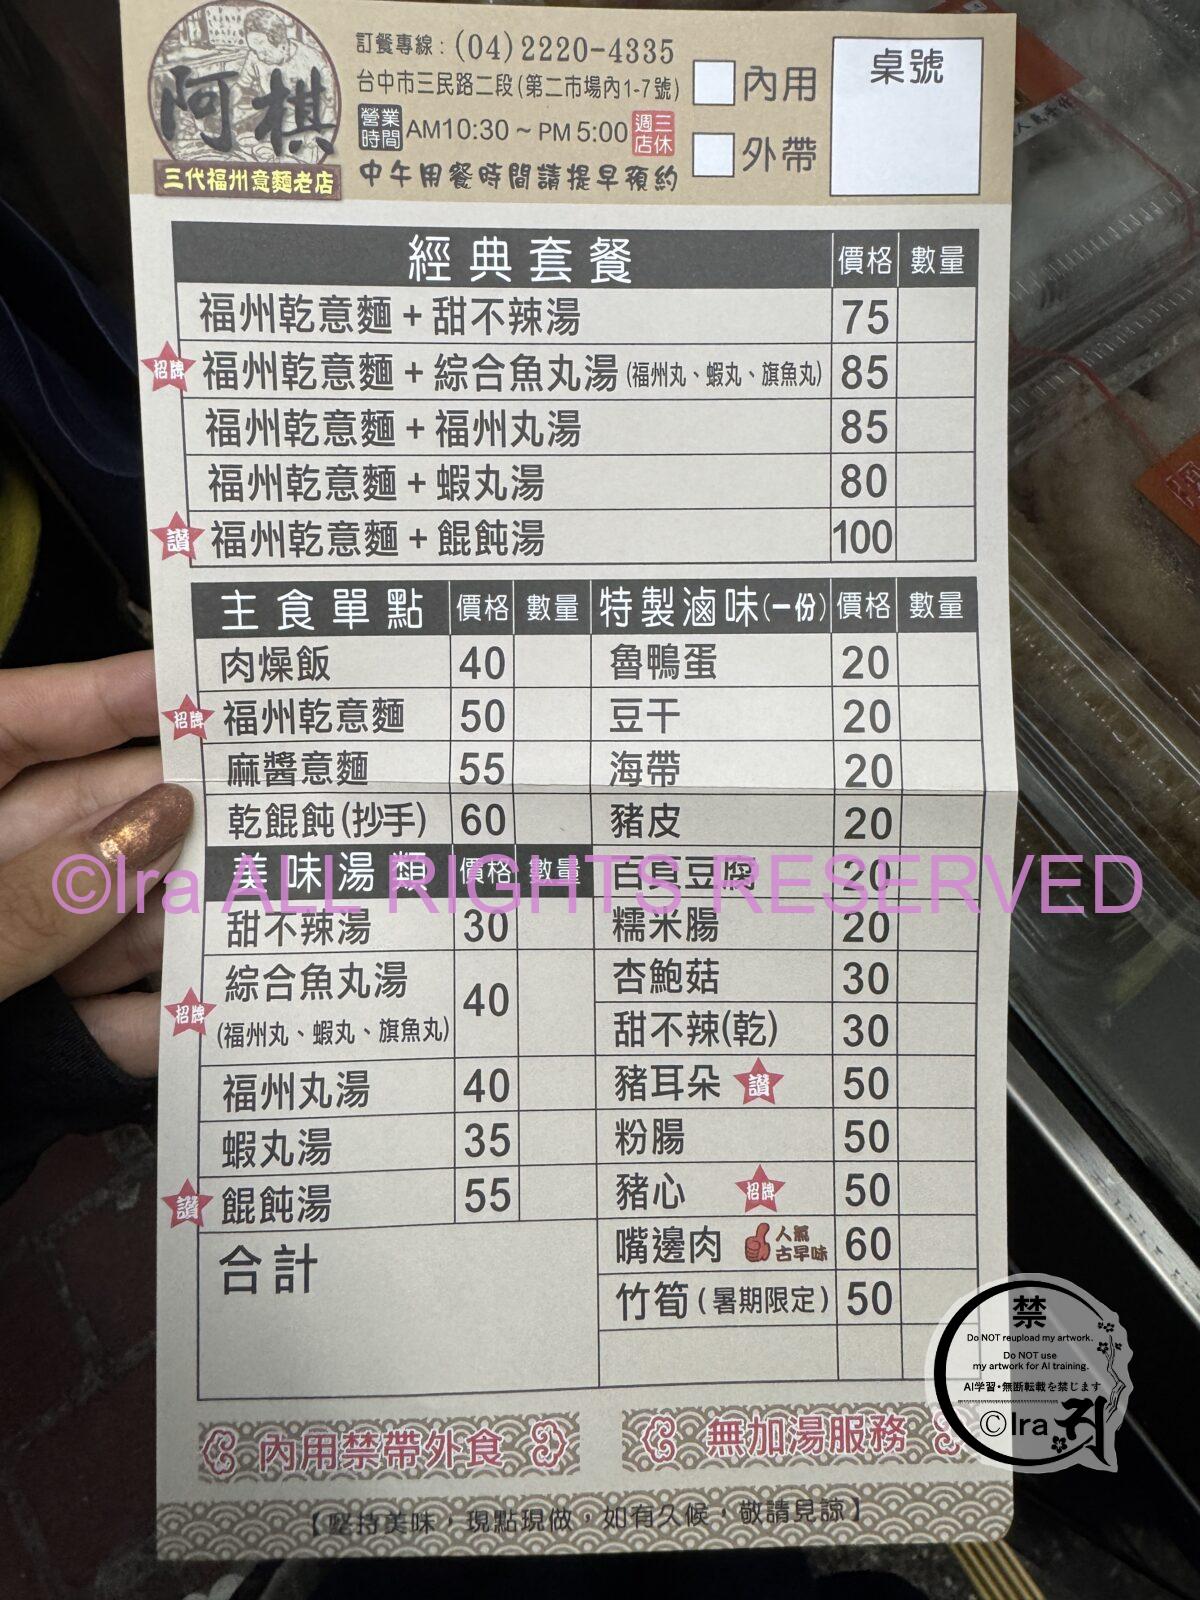 阿棋
三代福州意麵老店
訂餐專線：(04)2220-4335
台中市三民路二段(第二市場內1-7號)
營業時間 AM10:30～PM5:00 週三店休
中午用餐時間請提早預約
內用
外帶
桌號
經典套餐 價格 數量
福州乾意麵+甜不辣湯 75
招牌 福州乾意麵+綜合魚丸湯(福州丸、蝦丸、旗魚丸) 85
福州乾意麵+福州丸湯 85
福州乾意麵+蝦丸湯 80
讚 福州乾意麵+餛飩湯 100
主食單點 價格 數量
肉燥飯 40
招牌 福州乾意麵 50
麻醬意麵 55
乾餛飩(抄手) 60
美味湯類 價格 數量
甜不辣湯 30
招牌 綜合魚丸湯 40
(福州丸、蝦丸、旗魚丸)
福州丸湯 40
蝦丸湯 35
讚 餛飩湯 55
合計
特製滷味(一份) 價格 數量
魯鴨蛋 20
豆干 20
海帶 20
豬皮 20
百頁豆腐 20
糯米腸 20
杏鮑菇 30
甜不辣(乾) 30
豬耳朵 讚 50
粉腸 50
豬心 招牌 50
嘴邊肉 人氣古早味 60
竹筍(暑期限定) 50
內用禁帶外食
無加湯服務
【堅持美味，現點現做，如有久候，敬請見諒】
©Ira ALL RIGHTS RESERVED
禁
Do NOT reupload my artwork.
Do NOT use
my artwork for AI training.
AI学習・無断転載を禁じます
©Ira